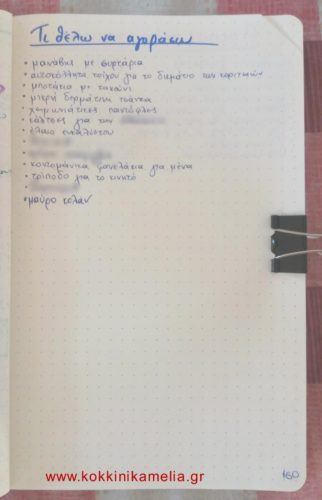 Τι θέλω να αγοράσω
• μανάβης με συρτάρια
• αυτοκόλλητα τοίχου για το δωμάτιο των κοριτσιών
• μποτάκια με τακούνι
• μικρή δερμάτινη τσάντα
• χειμωνιάτικες παντόφλες
• κάλτσες για την
• έλαιο ευκαλύπτου
• κοντομάνικα φανελάκια για μένα
• τρίποδο για το κινητό
• μαύρο κολάν
160
www.kokkinikamelia.gr